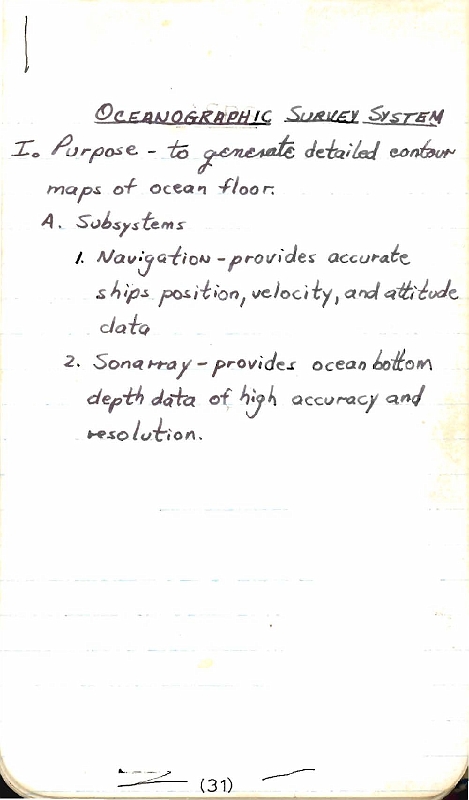 OCEANOGRAPHIC SURVEY SYSTEM
I. Purpose - to generate detailed contour
maps of ocean floor.
A. Subsystems
1. Navigation - provides accurate
ships position, velocity, and attitude
data
2. Sonarray - provides ocean bottom
depth data of high accuracy and
resolution.
(31)